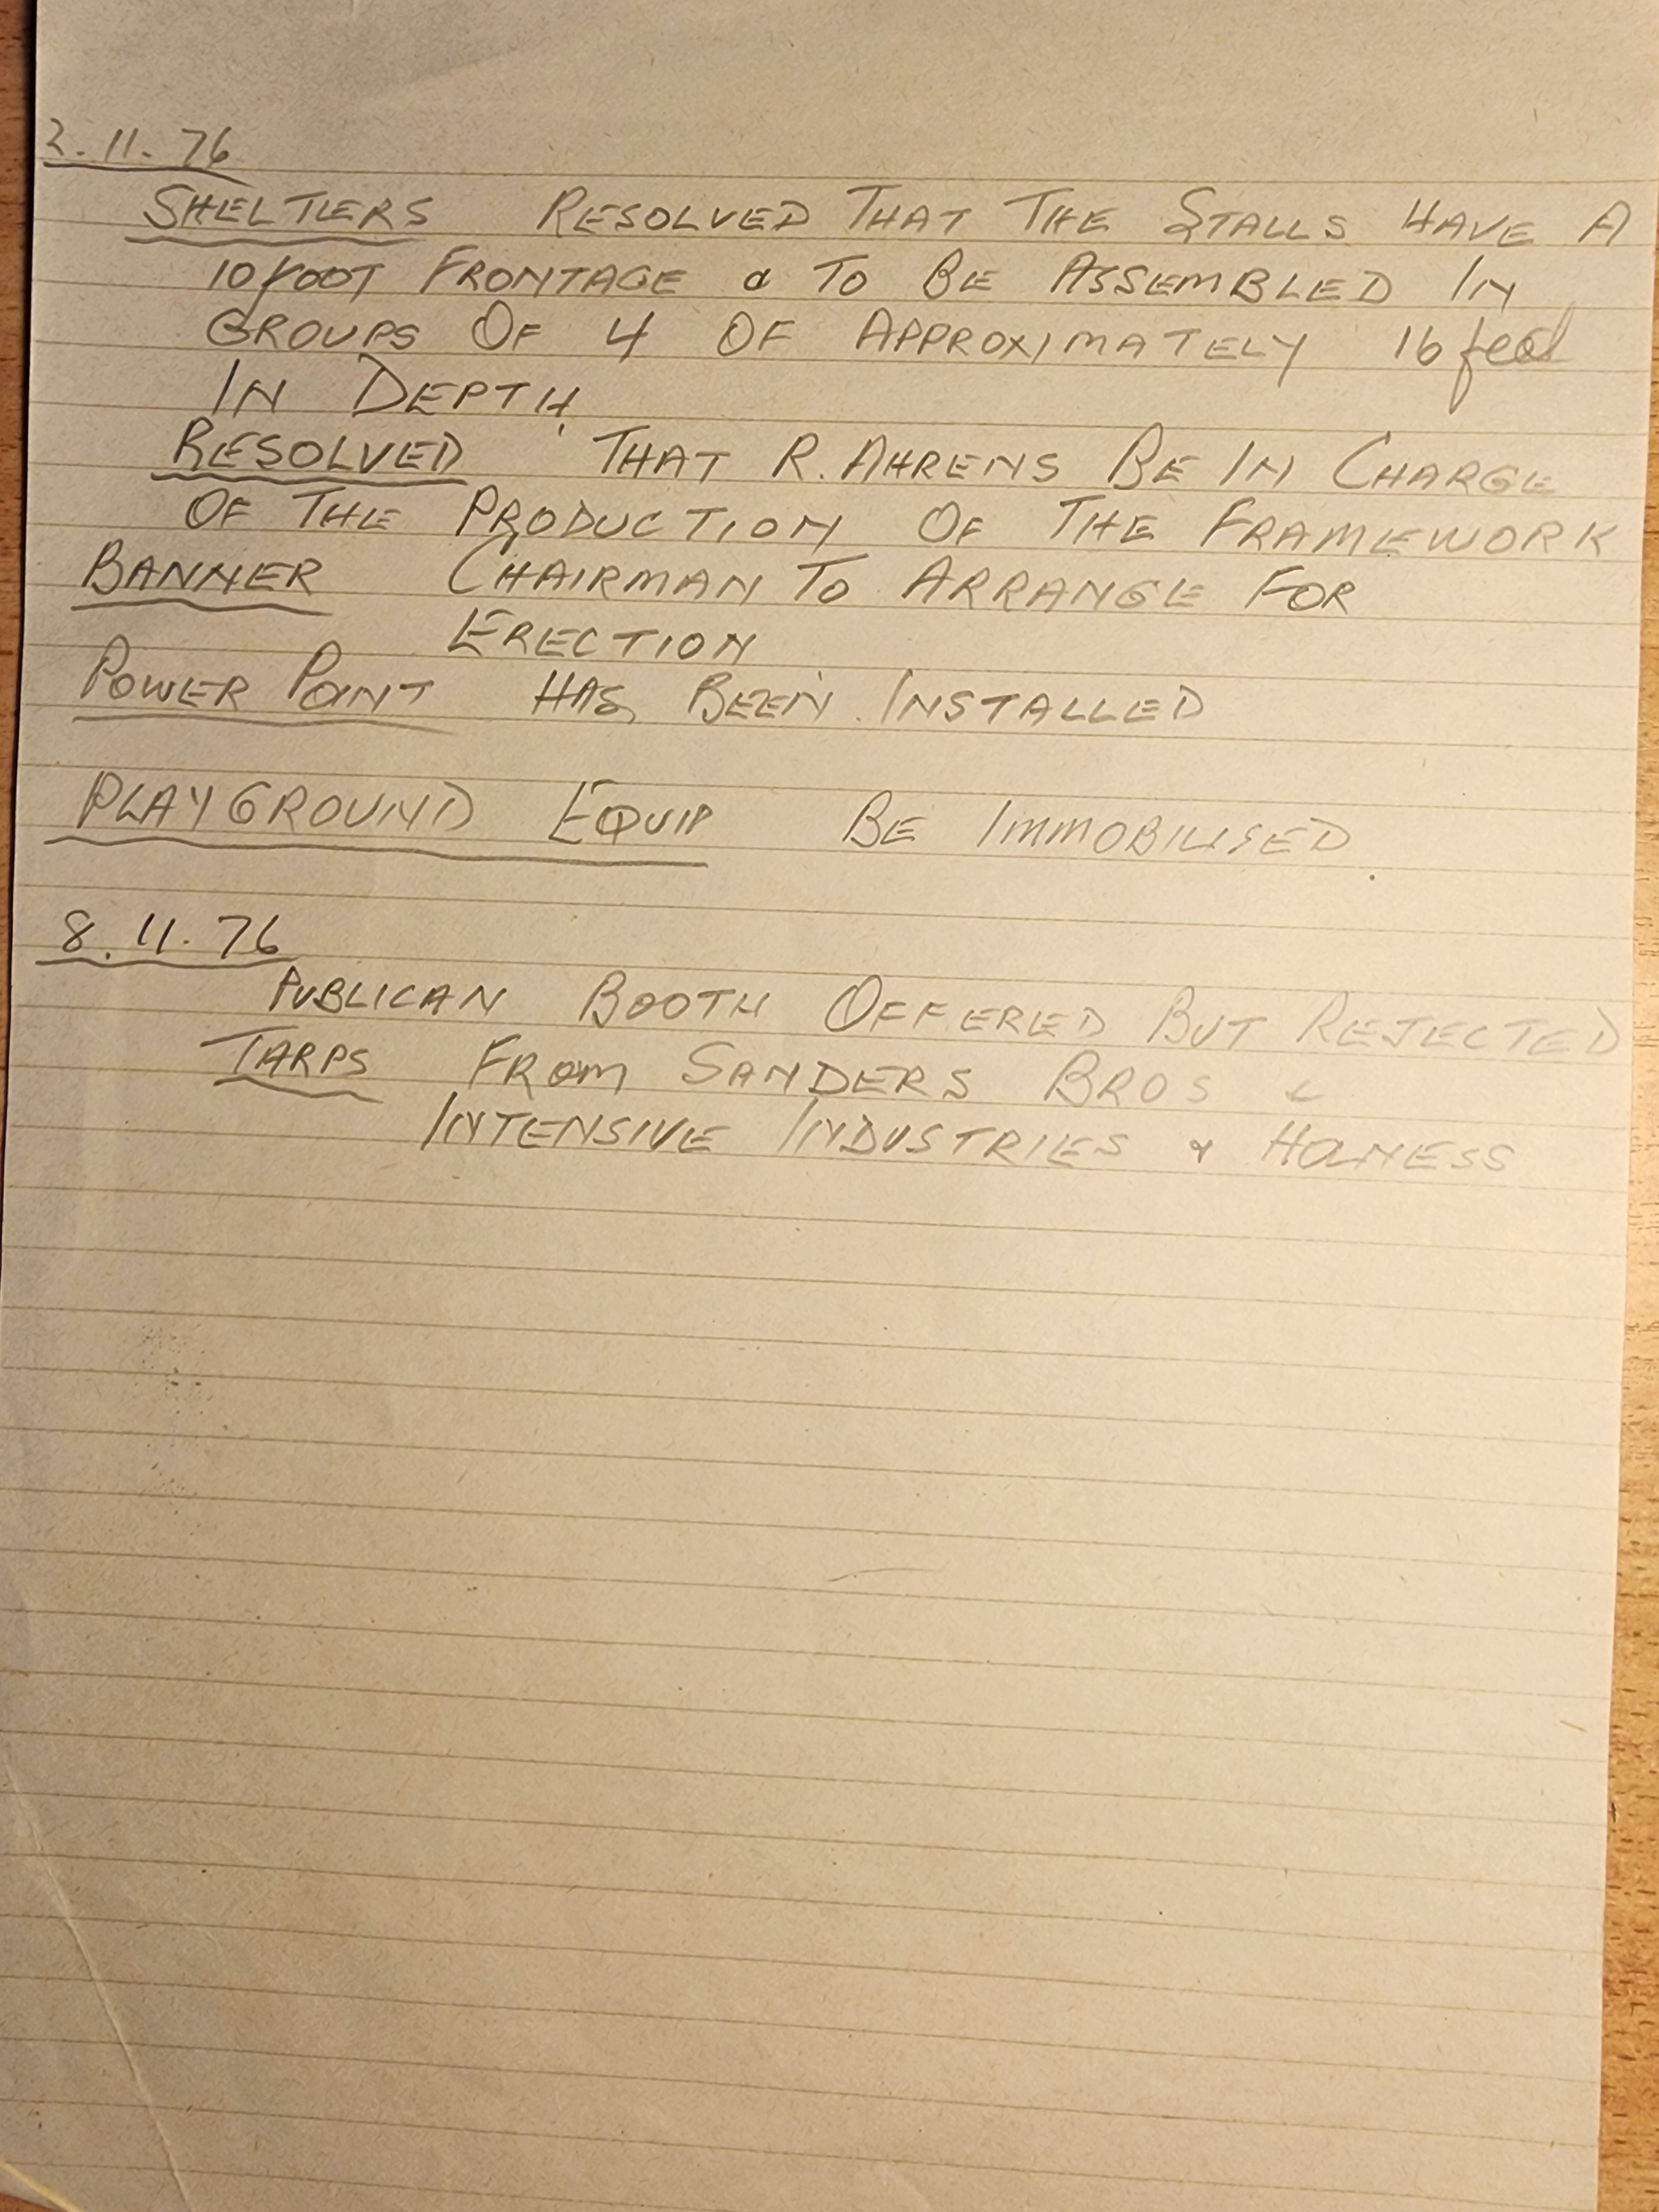 2.11.76
SHELTERS RESOLVED THAT THE STALLS HAVE A
10 foot FRONTAGE & TO BE ASSEMBLED IN
GROUPS OF 4 OF APPROXIMATELY 16 feet
IN DEPTH.
RESOLVED THAT R. AHRENS BE IN CHARGE
OF THE PRODUCTION OF THE FRAMEWORK
BANNER CHAIRMAN TO ARRANGE FOR
ERECTION
POWER POINT HAS BEEN INSTALLED
PLAYGROUND EQUIP BE IMMOBILISED
8.11.76
PUBLICAN BOOTH OFFERED BUT REJECTED
TARPS FROM SANDERS BROS &
INTENSIVE INDUSTRIES &